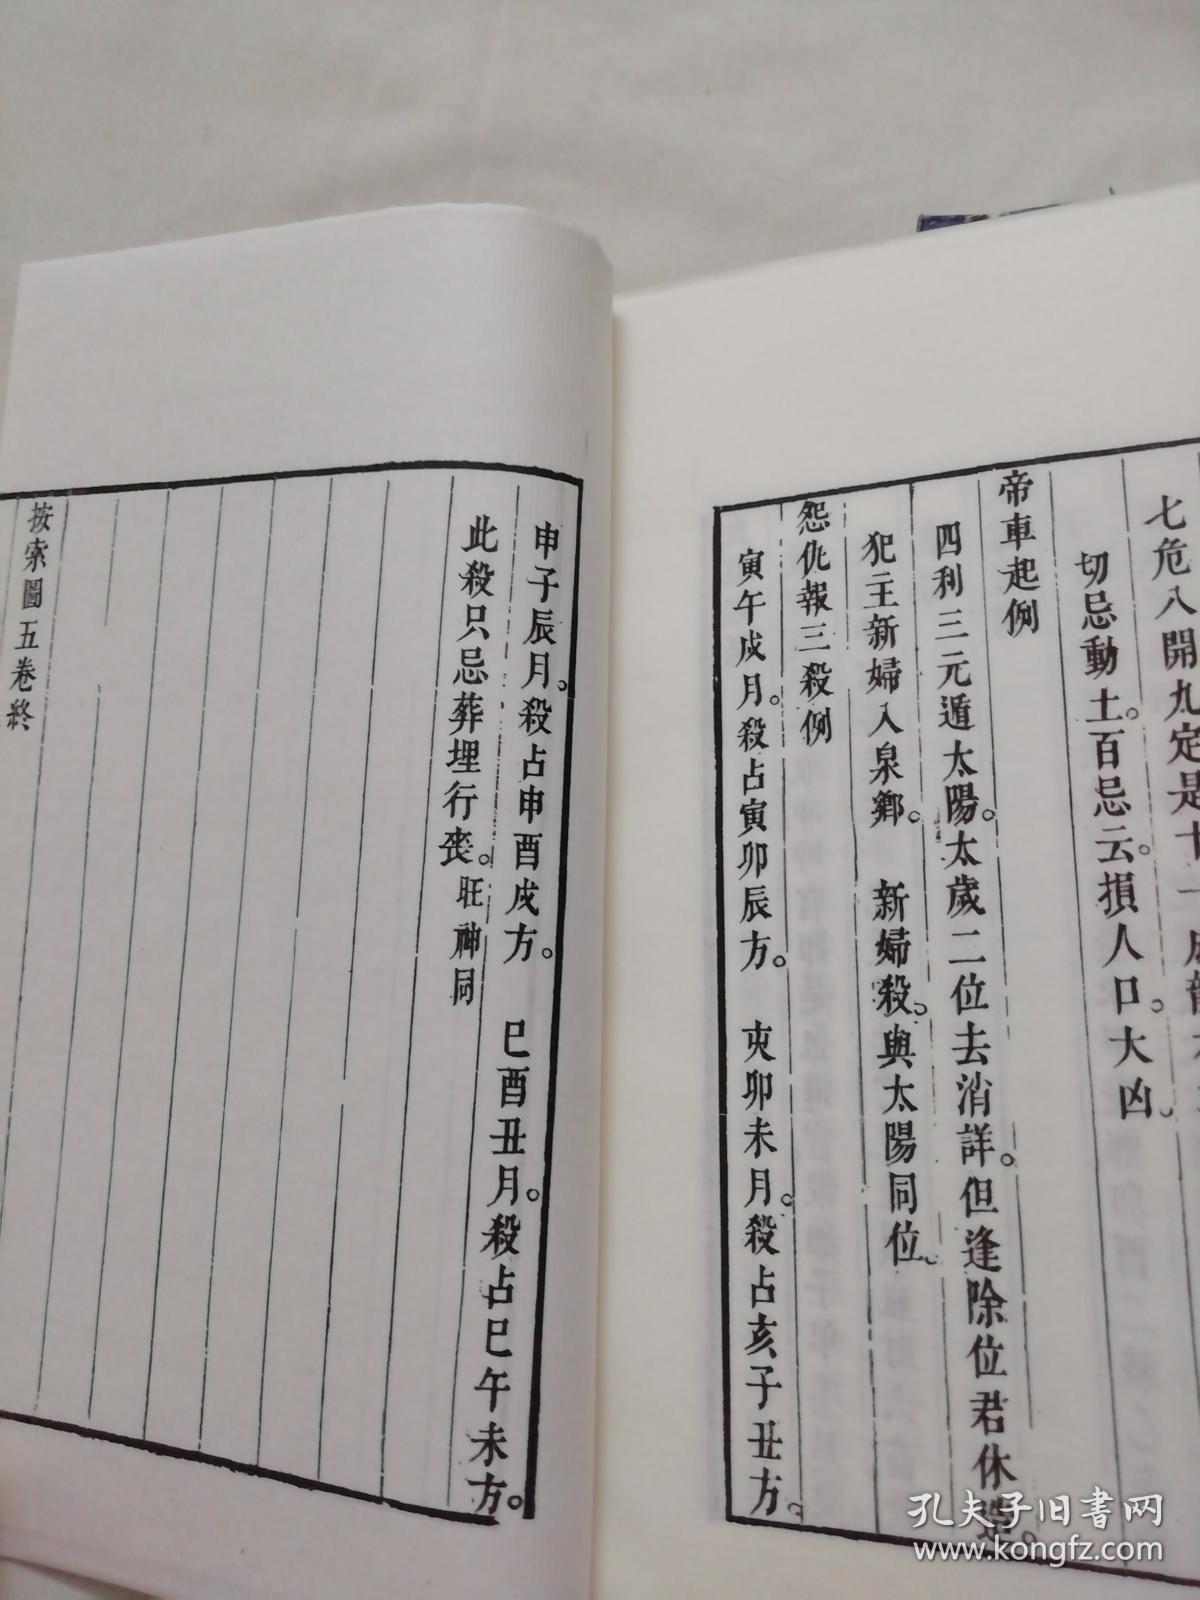 七危八開九定是十一成
切忌動土。百忌云。損人口。大凶。
帝車起例
四利三元遁太陽。太歲二位去消詳。但逢除位君休造。
犯主新婦入泉鄉。 新婦殺。與太陽同位。
怨仇報三殺例
寅午戌月。殺占寅卯辰方。 亥卯未月。殺占亥子丑方。
申子辰月。殺占申酉戌方。 巳酉丑月。殺占巳午未方。
此殺只忌葬埋行喪。旺神同
按索圖五卷終
孔夫子旧書网
www.kongfz.com